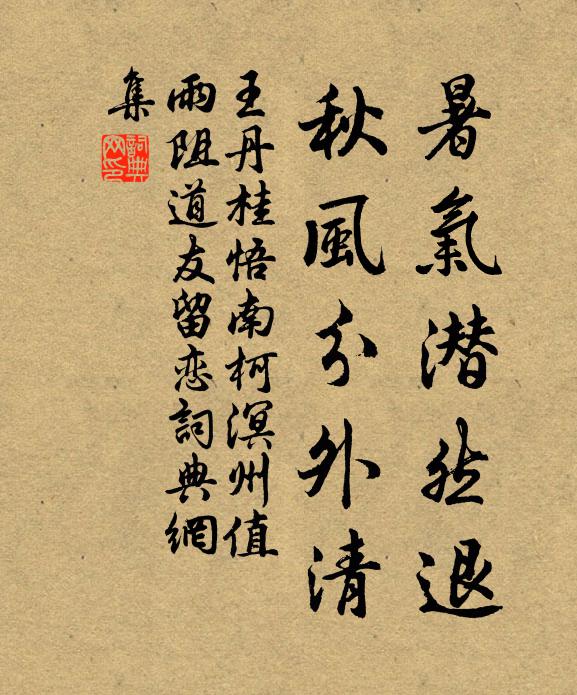 暑氣潜然退
秋風分外清
王丹桂悟南柯溟州值
雨阻道友留恋詞典網
集
詞典
网印